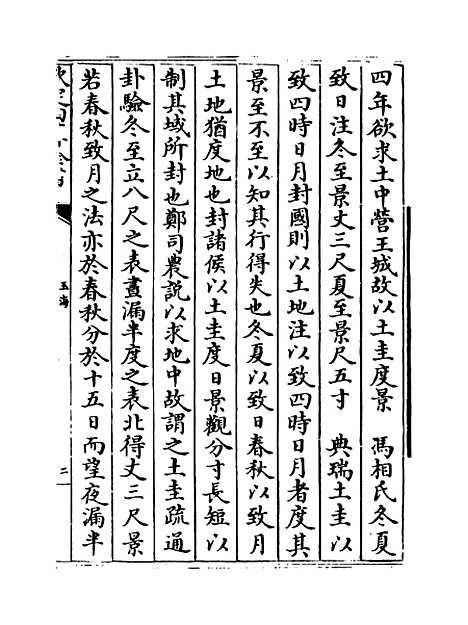 四年欲求土中營王城故以土圭度景　馮相氏冬夏
致日注冬至景丈三尺夏至景尺五寸　典瑞土圭以
致四時日月封國則以土地注以致四時日月者度其
景至不至以知其行得失也冬夏以致日春秋以致月
土地猶度地也封諸侯以土圭度日景觀分寸長短以
制其域所封也鄭司農說以求地中故謂之土圭疏通
卦驗冬至立八尺之表晝漏半度之表北得丈三尺景
若春秋致月之法亦於春秋分於十五日而望夜漏半
玉海
二